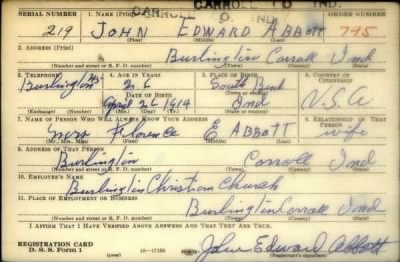 CARROLL CO. IND.
SERIAL NUMBER 1. NAME (Print) ORDER NUMBER
219 JOHN EDWARD ABBOTT 795
(First) (Middle) (Last)
2. ADDRESS (Print)
Burlington Carroll Ind
(Number and street or R. F. D. number) (Town) (County) (State)
3. TELEPHONE 4. AGE IN YEARS 5. PLACE OF BIRTH 6. COUNTRY OF CITIZENSHIP
Burlington 26 South Bend
DATE OF BIRTH (Town or county)
April 26 1914 Ind U.S.A
(Exchange) (Number) (Mo.) (Day) (Yr.) (State or country)
7. NAME OF PERSON WHO WILL ALWAYS KNOW YOUR ADDRESS 8. RELATIONSHIP OF THAT PERSON
Mrs Florence E ABBOTT wife
(Mr., Mrs., Miss) (First) (Middle) (Last)
9. ADDRESS OF THAT PERSON
Burlington Carroll Ind
(Number and street or R. F. D. number) (Town) (County) (State)
10. EMPLOYER'S NAME
Burlington Christian Church
11. PLACE OF EMPLOYMENT OR BUSINESS
Burlington Carroll Ind
(Number and street or R. F. D. number) (Town) (County) (State)
I AFFIRM THAT I HAVE VERIFIED ABOVE ANSWERS AND THAT THEY ARE TRUE.
REGISTRATION CARD
D. S. S. Form 1 16-17105 John Edward Abbott
(over) (Registrant's signature)